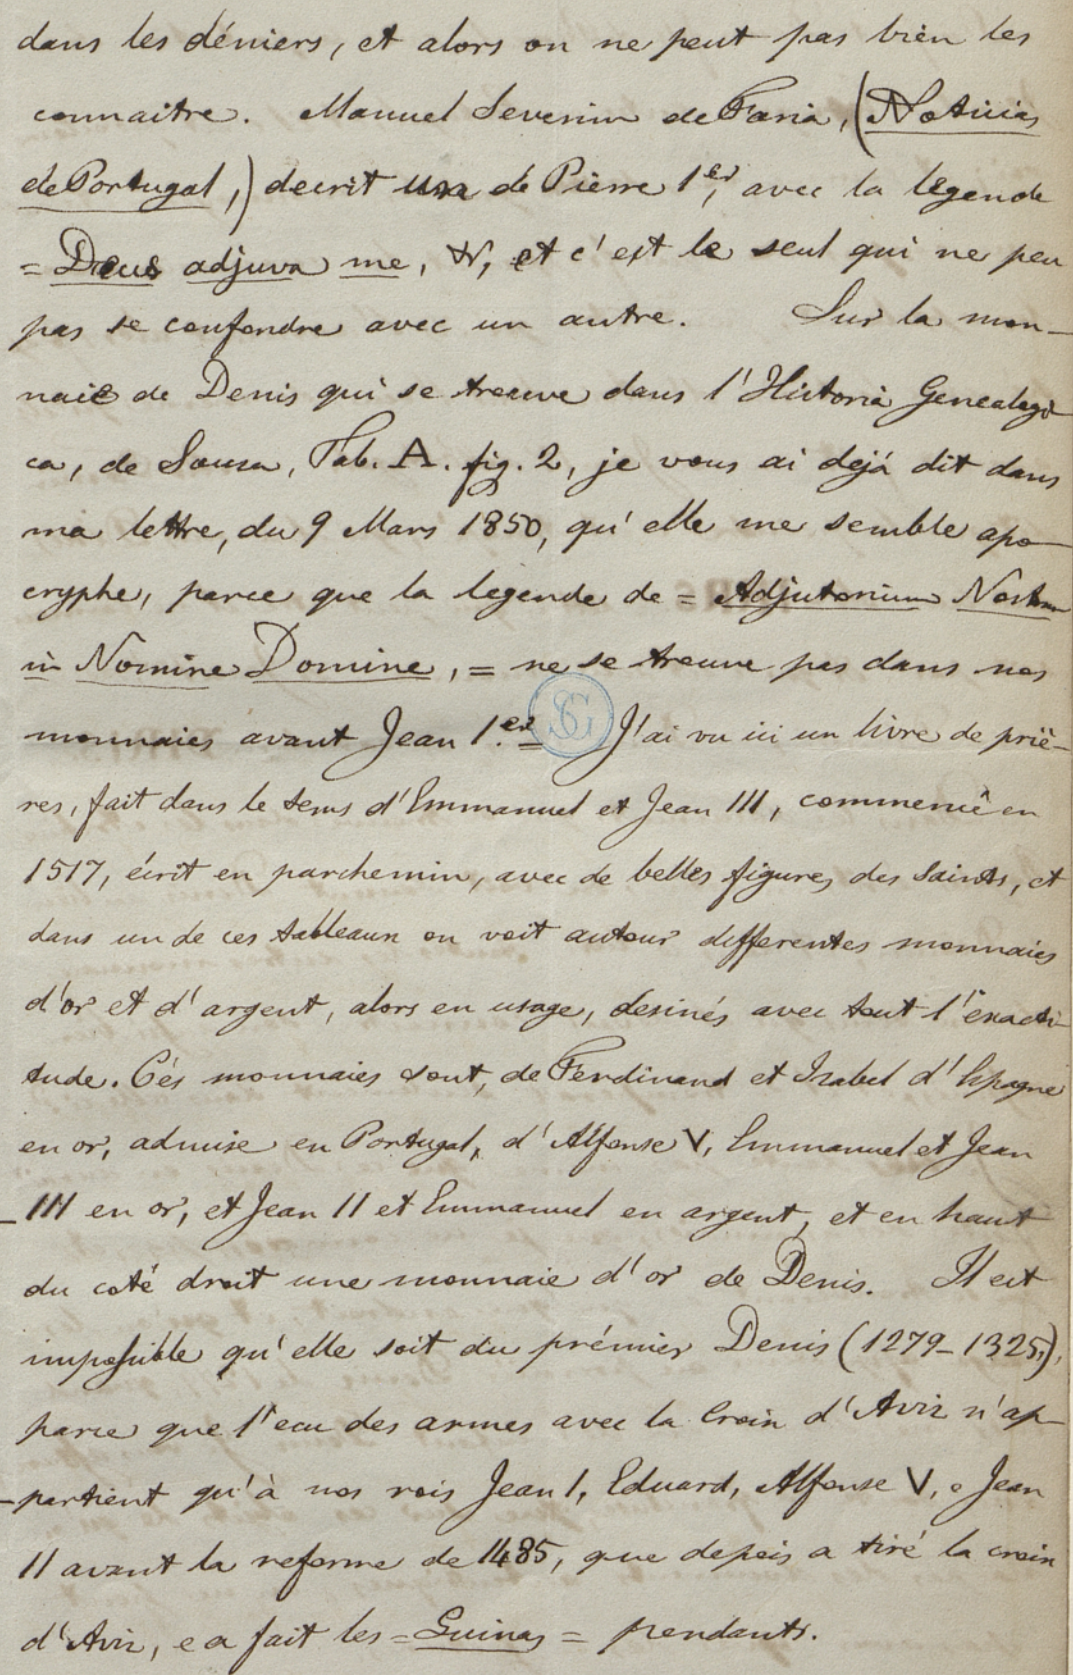 dans les déniers, et alors on ne peut pas bien les
connaitre. Manuel Severim de Faria, (Noticias
de Portugal,) decrit una de Pierre 1er, avec la légende
= Deus adjuva me, &, et c'est le seul qui ne peu
pas se confondre avec un autre. Sur la mon-
naie de Denis qui se treuve dans l'Historia Genealogi
ca, de Sousa, Tab. A. fig. 2, je vous ai dejá dit dans
ma lettre, du 9 Mars 1850, qu'elle me semble apo-
cryphe, parce que la legende de = Adjutorium Nostrum
in Nomine Domine, = ne se treuve pas dans nos
monnaies avant Jean 1.er J'ai vu ici un livre de priè-
res, fait dans le tems d'Emmanuel et Jean III, commencé en
1517, écrit en parchemin, avec de belles figures des Saints, et
dans un de ces tableaux on voit autour differentes monnaies
d'or et d'argent, alors en usage, desinés avec tout l'exacti-
tude. Cés monnaies sont, de Ferdinand et Izabel d'Espagne
en or, admise en Portugal, d'Alfonse V, Emmanuel et Jean
III en or, et Jean II et Emmanuel en argent, et en haut
du coté droit une monnaie d'or de Denis. Il est
impossible qu'elle soit du prémier Denis (1279-1325),
parce que l'ecu des armes avec la Croix d'Aviz n'ap-
-partient qu'à nos rois Jean I, Eduard, Alfonse V, e Jean
II avant la reforme de 1485, que depois a tiré la croix
d'Aviz, e a fait les = Quinas = pendants.
SG